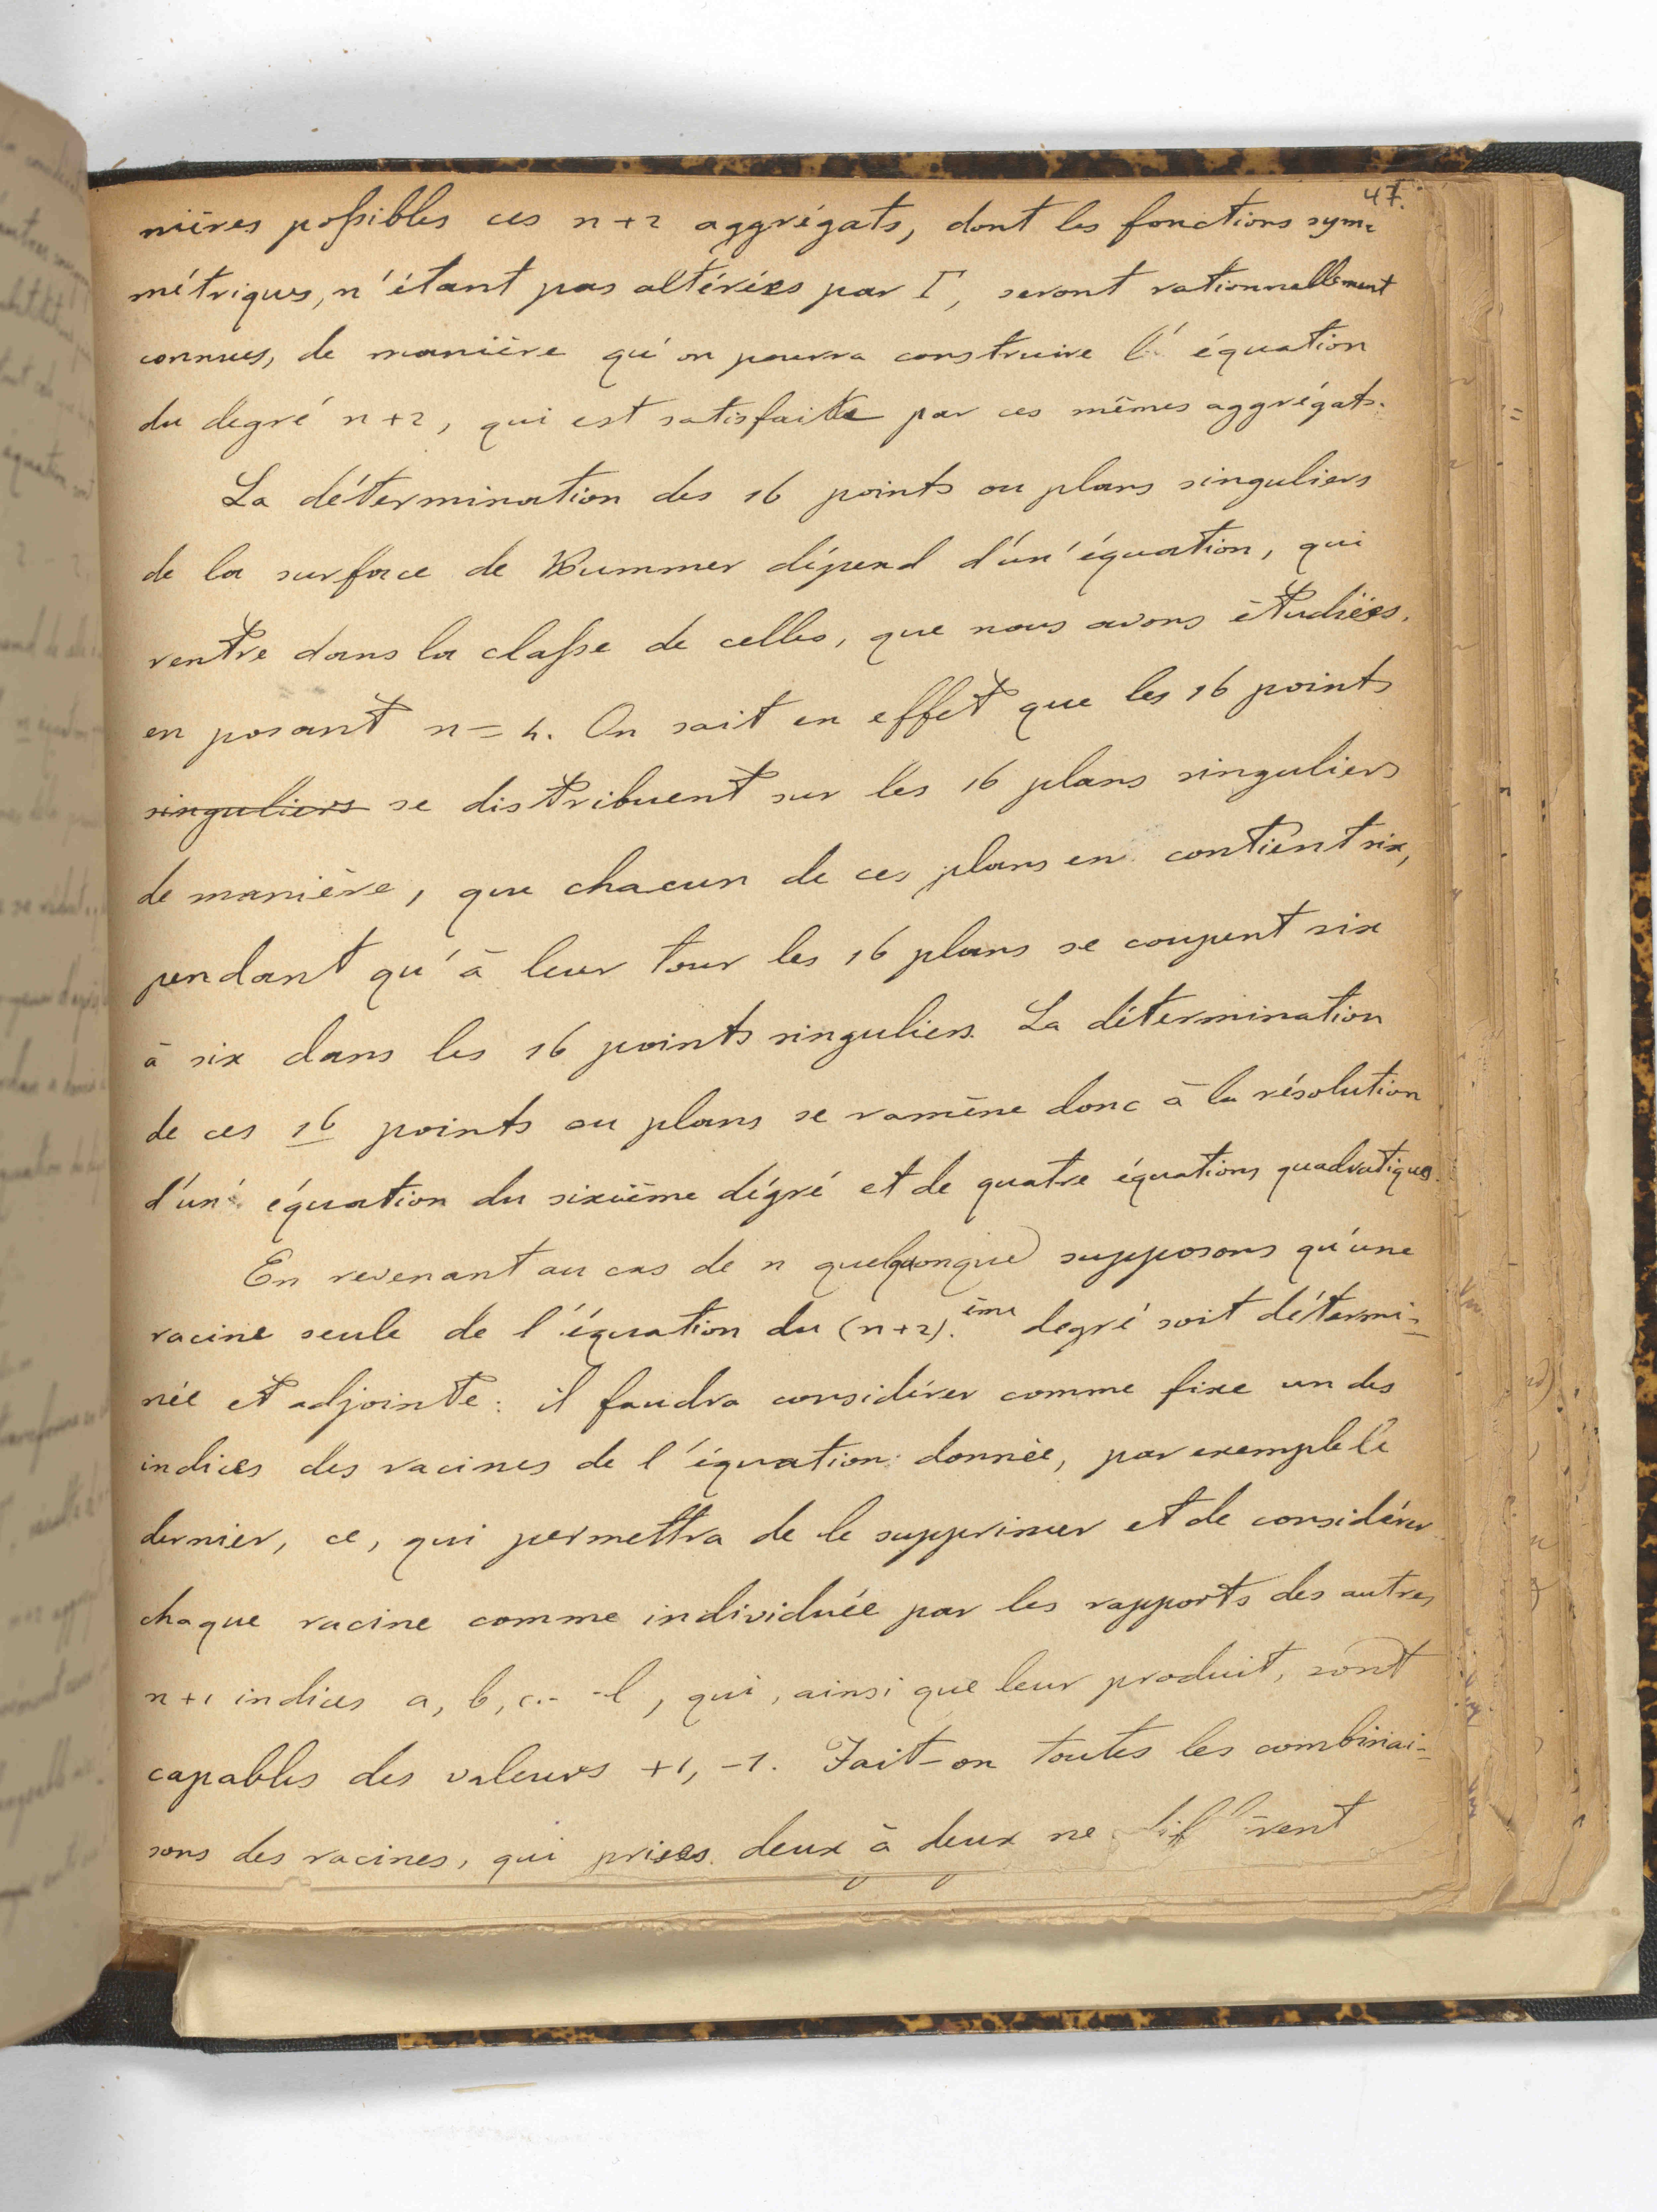 47.
nières possibles ces n+2 aggrégats, dont les fonctions sym=
métriques, n'étant pas altérées par Γ, seront rationnellement
connues, de manière qu'on pourra construire l'équation
du degré n+2, qui est satisfaite par ces mêmes aggrégats.
La détermination des 16 points ou plans singuliers
de la surface de Kummer dépend d'un'équation, qui
rentre dans la classe de celles, que nous avons étudiées,
en posant n=4. On sait en effet que les 16 points
singuliers se distribuent sur les 16 plans singuliers
de manière, que chacun de ces plans en contient six,
pendant qu'à leur tour les 16 plans se coupent six
à six dans les 16 points singuliers. La détermination
de ces 16 points ou plans se ramène donc à la résolution
d'un' équation du sixième dégré et de quatre équations quadratiques.
En revenant au cas de n quelquonque supposons qu'une
racine seule de l'équation du (n+2).ème degré soit détermi=
née et adjointe: il faudra considérer comme fixe un des
indices des racines de l'équation donnée, par exemple le
dernier, ce, qui permettra de le supprimer et de considérer
chaque racine comme individuée par les rapports des autres
n+1 indices a, b, c.--l, qui, ainsi que leur produit, sont
capables des valeurs +1, -1. Fait-on toutes les combinai=
sons des racines, qui prises deux à deux ne diffèrent